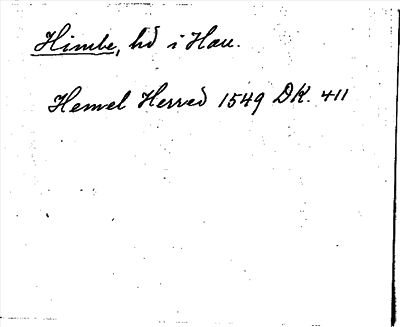 Himle, hd i Hall.
Hemel Herred 1549 DK. 411